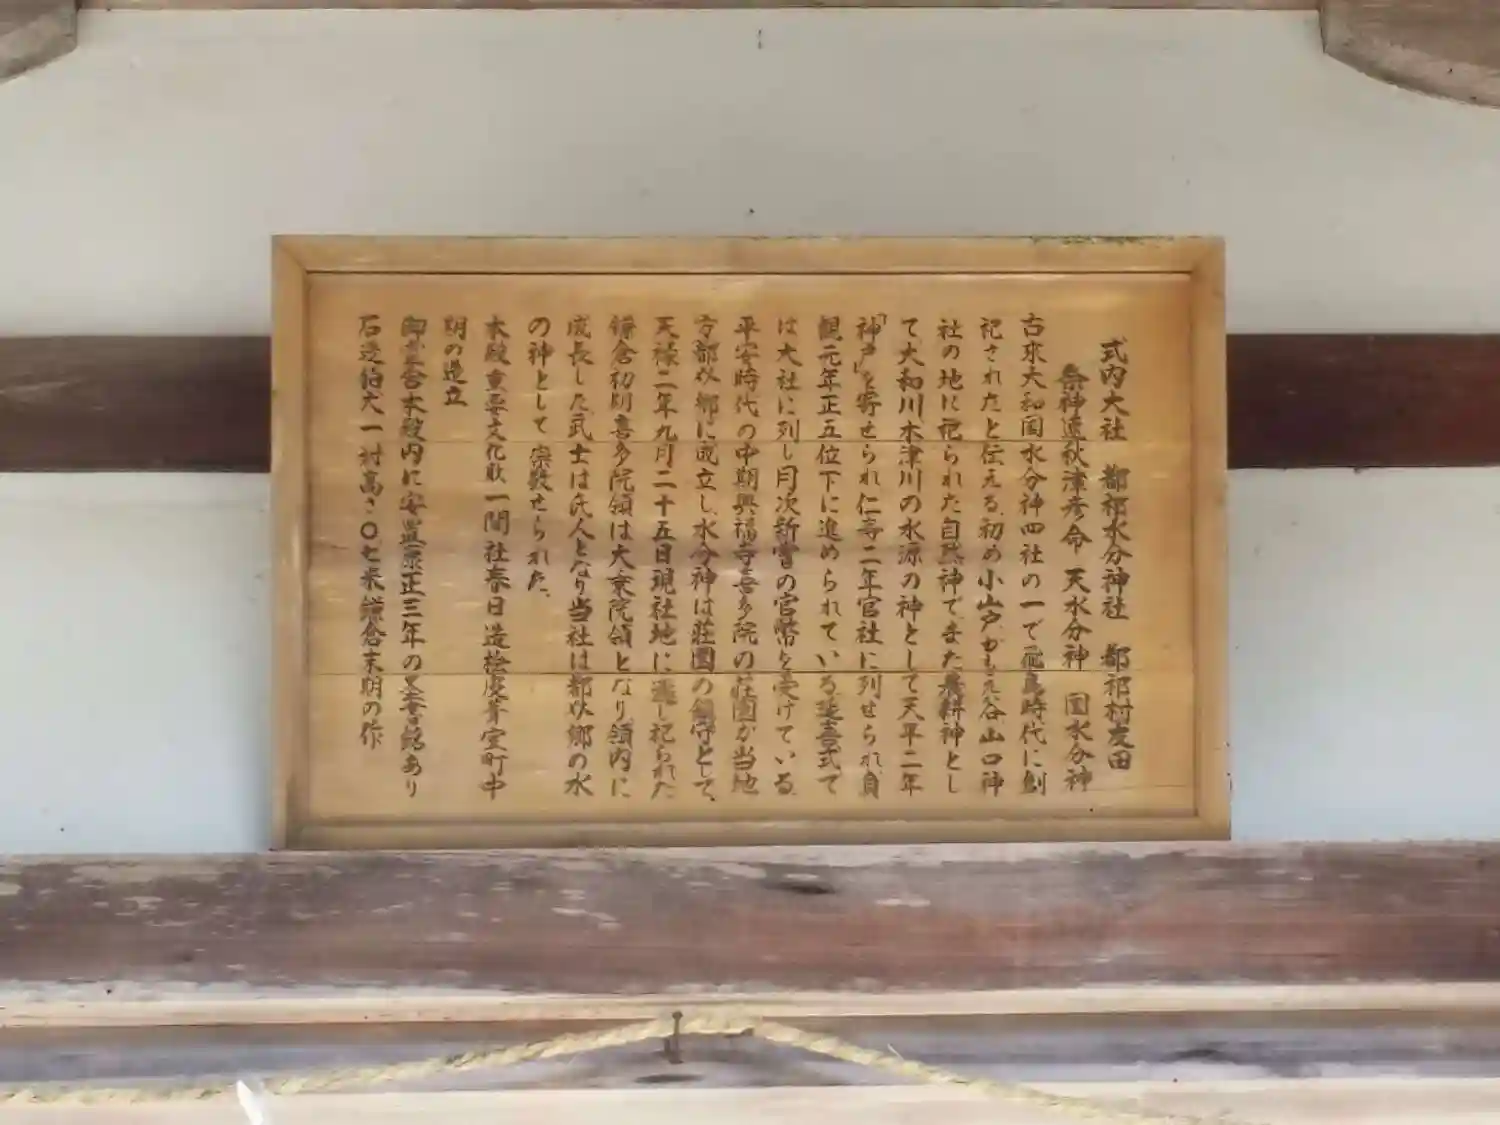 式内大社 都祁水分神社 都祁村友田
祭神速秋津彦命 天水分神 国水分神
古来大和国水分神四社の一で飛鳥時代に創
祀されたと伝える、初め小山戸かもえ谷山口神
社の地に祀られた自然神でまた農耕神とし
て大和川木津川の水源の神として天平二年
「神戸」を寄せられ仁寿二年官社に列せられ貞
観元年正五位下に進められている延喜式で
は大社に列し月次新嘗の官幣を受けている
平安時代の中期興福寺喜多院の荘園が当地
方都介郷に成立し、水分神は荘園の鎮守として、
天禄二年九月二十五日現社地に遷し祀られた
鎌倉初期喜多院領は大乗院領となり、領内に
成長した武士は氏人となり当社は都介郷の水
の神として崇敬せられた、
本殿重要文化財一間社春日造桧皮葺室町中
期の造立
御台本殿内に安置 正三年の墨書銘あり
石造狛犬一対高さ〇、七米鎌倉末期の作